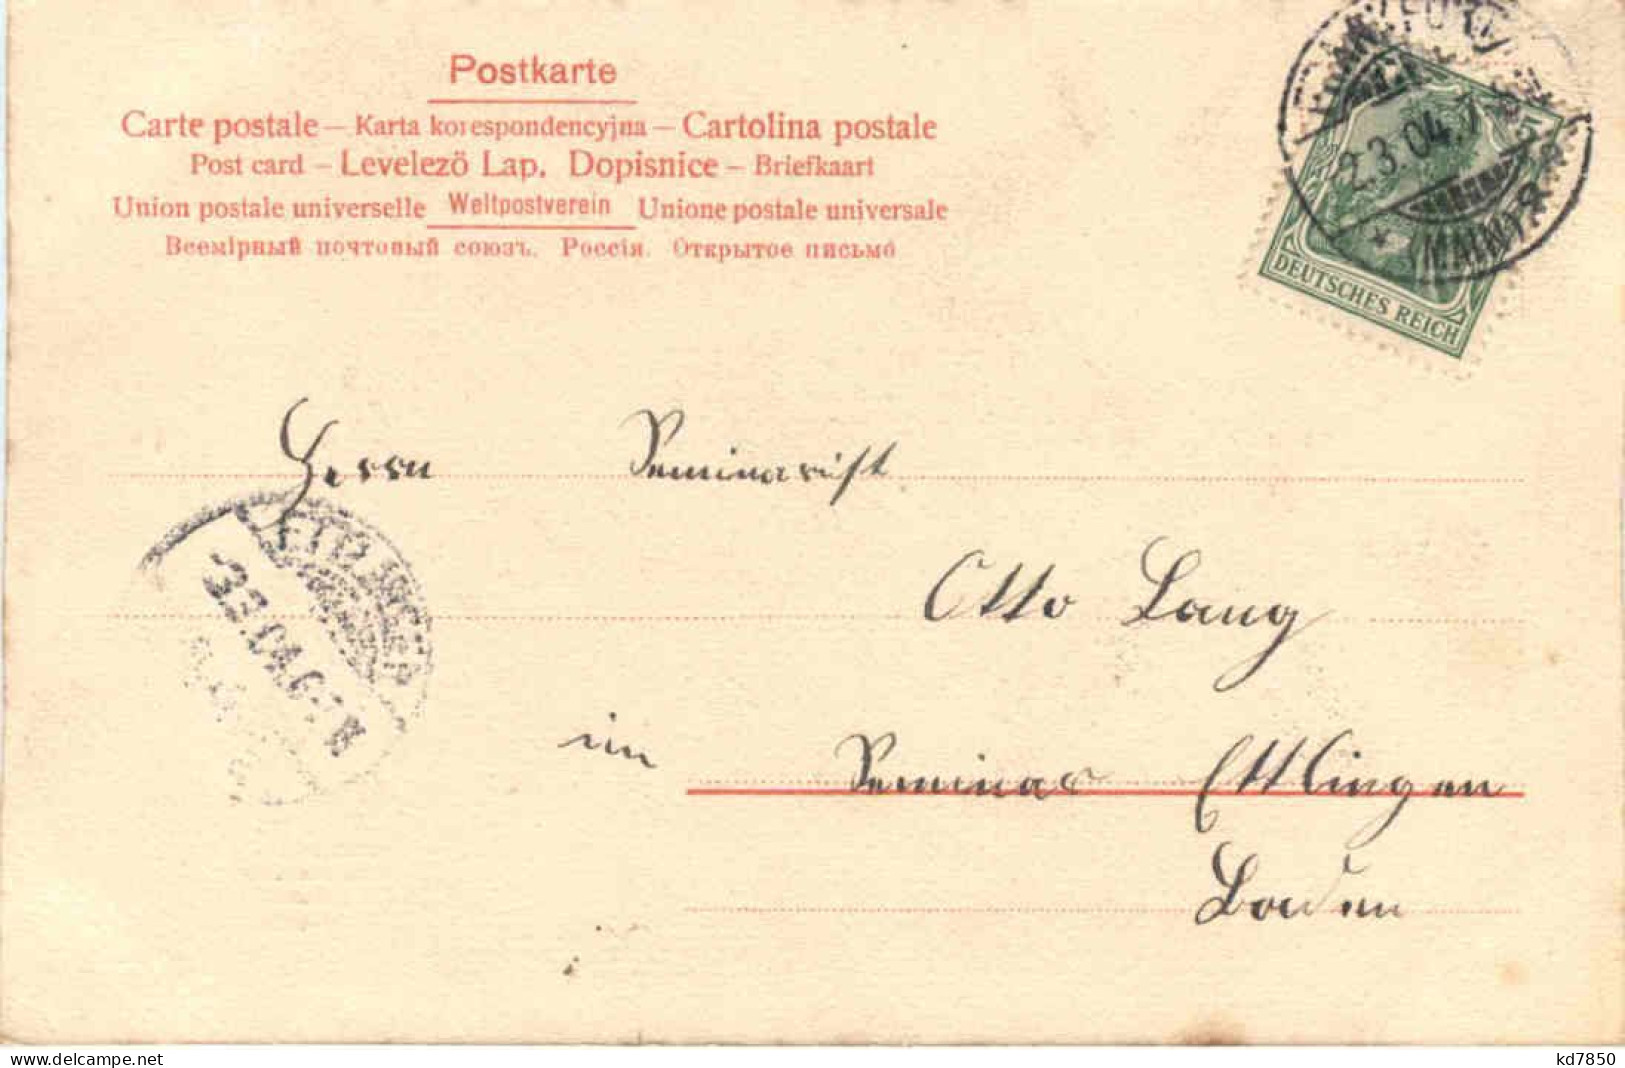 Postkarte
Carte postale – Karta korespondencyjna – Cartolina postale
Post card – Levelező Lap. Dopisnice – Briefkaart
Union postale universelle Weltpostverein Unione postale universale
Всемірный почтовый союзъ. Россія. Открытое письмо
FRANKFURT
2.3.04.
(MAIN)
5
DEUTSCHES REICH
Herrn Seminarist
ETTLINGEN
3.3.04.
Otto Lang
im Seminar Ettlingen
Baden
kd7850